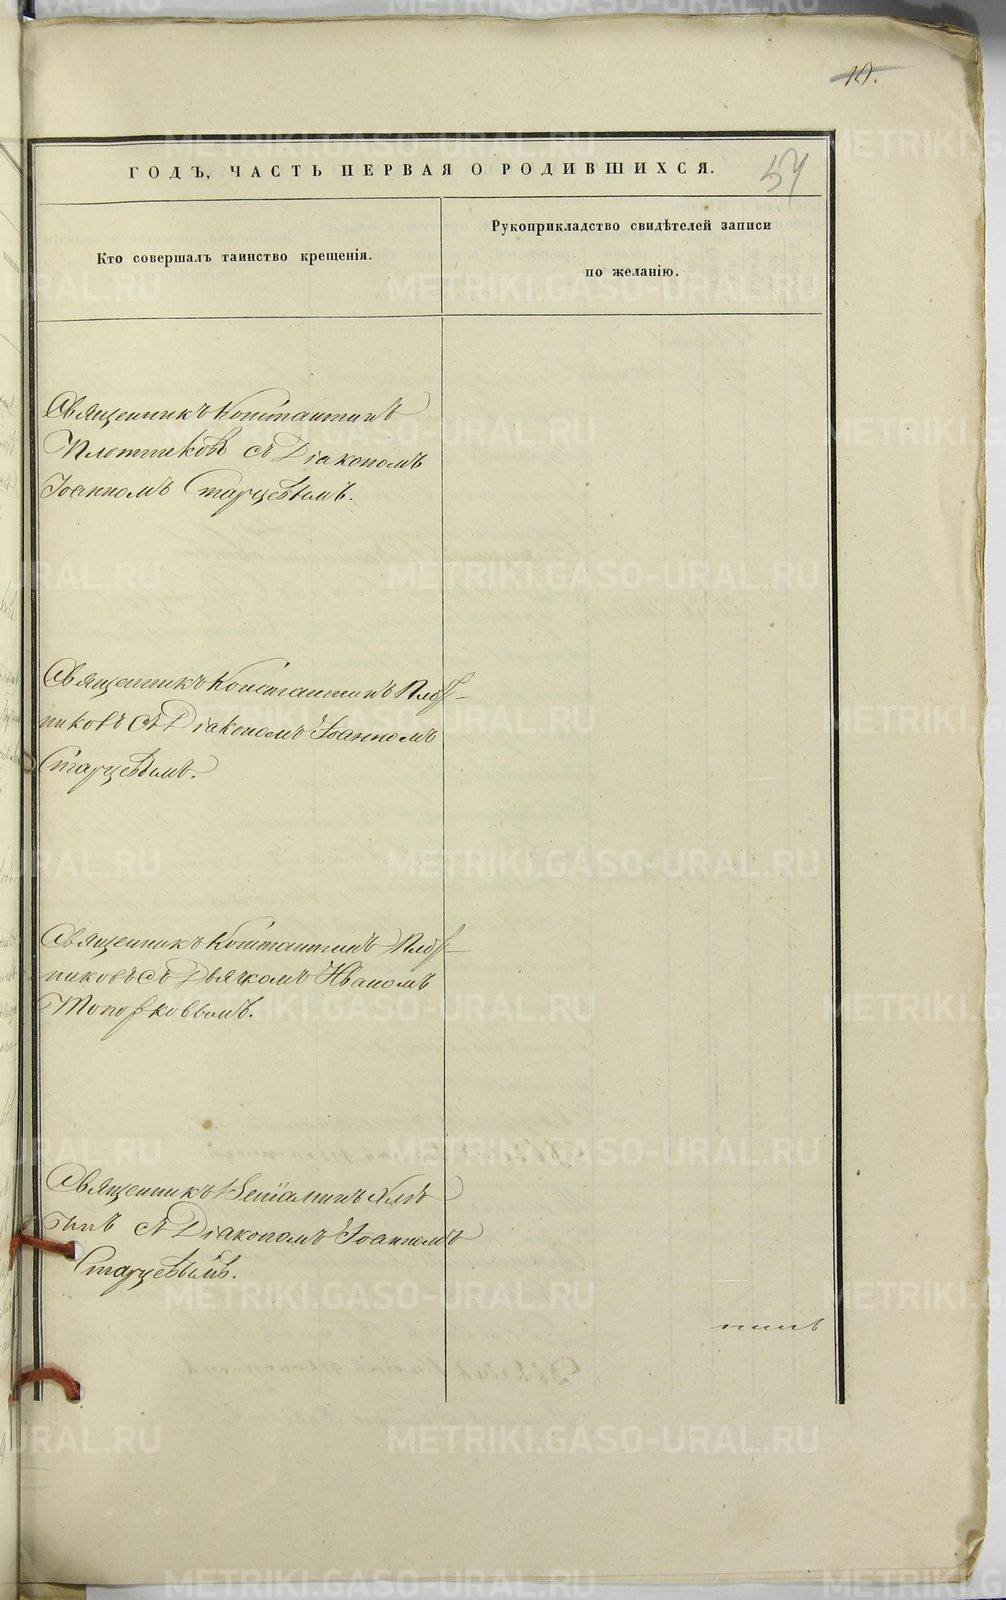 10.
ГОДЪ, ЧАСТЬ ПЕРВАЯ О РОДИВШИХСЯ.
54
Кто совершалъ таинство крещенія.
Рукоприкладство свидѣтелей записи
по желанію.
Священникъ Константинъ
Плотниковъ съ Діакономъ
Іоанномъ Старцевымъ.
Священникъ Константинъ Плот-
никовъ съ Діакономъ Іоанномъ
Старцевымъ.
Священникъ Константинъ Плот-
никовъ съ Дьячкомъ Иваномъ
Топорковымъ.
Священникъ Веніаминъ
съ Діакономъ Іоанномъ
Старцевымъ.
METRIKI.GASO-URAL.RU